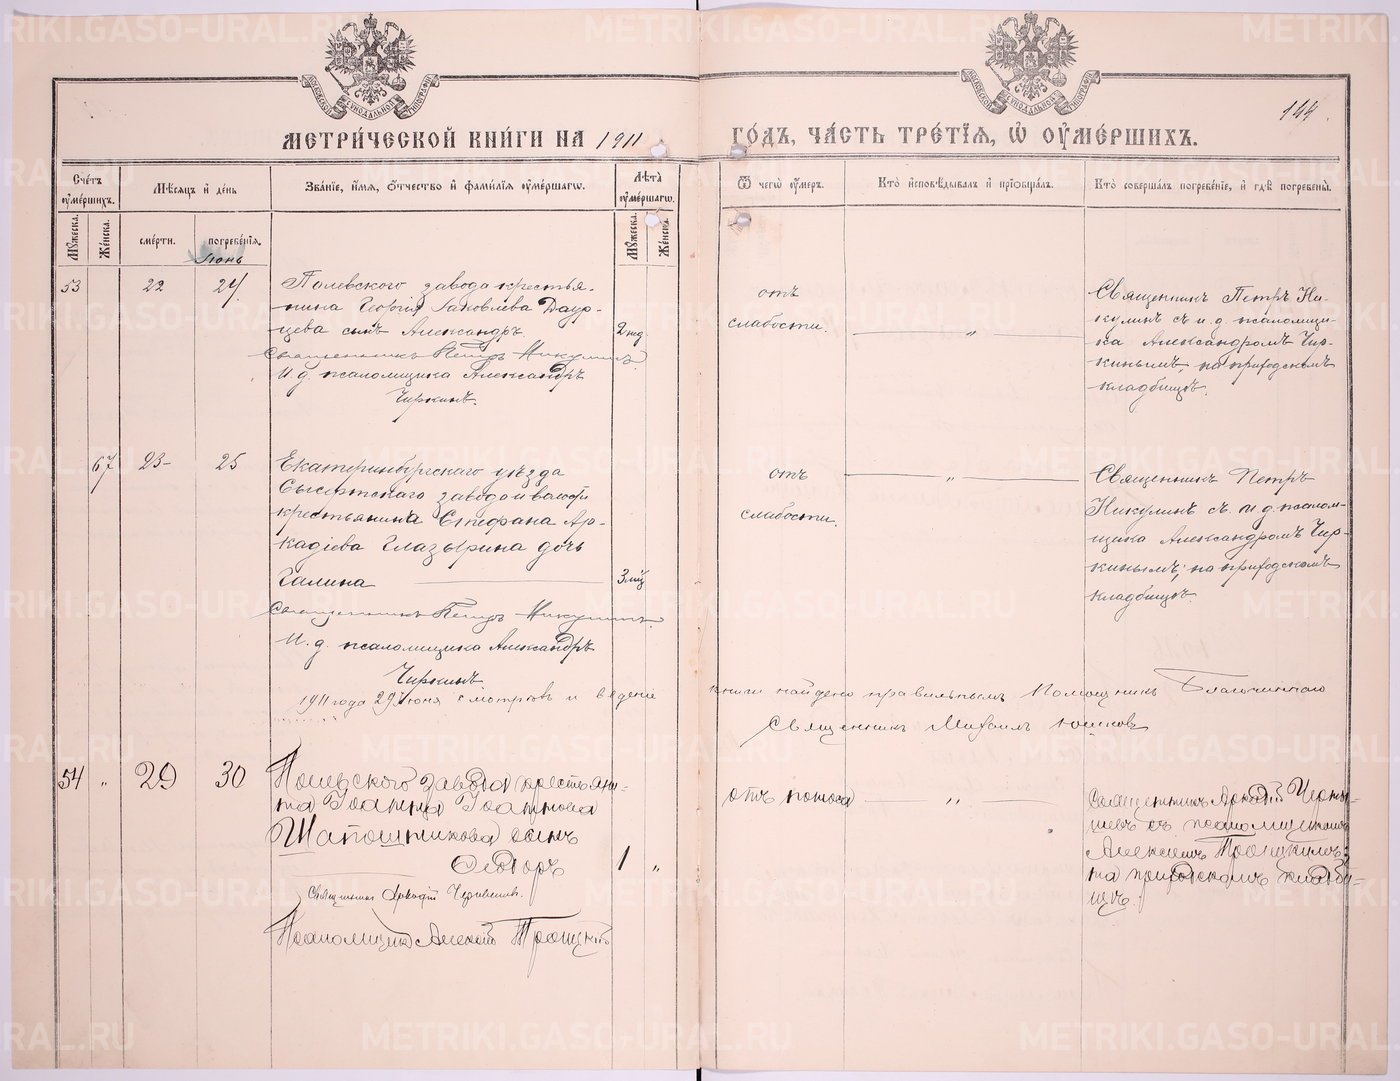 МЕТРИ́ЧЕСКОЙ КНИ́ГИ НА 1911 ГО́ДЪ, ЧА́СТЬ ТРЕ́ТІѦ, Ѡ҆ ОУ҆МЕ́РШИХЪ.
144.
Сче́тъ оу҆ме́ршихъ.
Мꙋ́жеска.
Же́нска.
Мѣ́сѧцъ и҆ де́нь
сме́рти.
погребе́нїѧ.
Іюнь
Зва́нїе, и҆́мѧ, ѻ҆́тчество и҆ фами́лїѧ оу҆ме́ршагѡ.
Лѣ́та оу҆ме́ршагѡ.
Мꙋ́жеска.
Же́нска.
Ѿ чегѡ̀ оу҆́меръ.
Кто̀ и҆сповѣ́дывалъ и҆ прїѡбща́лъ.
Кто̀ соверша́лъ погребе́нїе, и҆ гдѣ̀ погребены̀.
53
22
24
Полевского завода крестья-
нина Георгія Іаковлева Даур-
цева сынъ Александръ.
2 нед.
Священникъ Петръ Никулинъ
И. д. псаломщика Александръ
Чиркинъ.
отъ
слабости.
"
Священникъ Петръ Ни-
кулинъ съ и. д. псаломщи-
ка Александромъ Чир-
кинымъ, на приходскомъ
кладбищѣ.
67
23
25
Екатеринбургскаго уѣзда
Сысертскаго завода и волости
крестьянина Стефана Ар-
кадіева Глазырина дочь
Галина
3 мц
Священникъ Петръ Никулинъ
И. д. псаломщика Александръ
Чиркинъ
отъ
слабости.
"
Священникъ Петръ
Никулинъ съ и. д. псалом-
щика Александромъ Чир-
кинымъ; на приходскомъ
кладбищѣ.
1911 года 29 Іюня смотрѣв и веденіе книги найдено правильнымъ Помощникъ Благочиннаго
Священникъ Михаил Юшков
54
"
29
30
Полевского завода крестьяни-
на Іоанна Іоаннова
Шапошникова сынъ
Ѳедоръ
1
"
Священник Аркадій Чернышевъ.
Псаломщикъ Алексѣй Троицкій
отъ поноса
"
Священникъ Аркадій Черны-
шевъ съ псаломщикомъ
Алексѣемъ Троицкимъ;
на приходскомъ кладби-
щѣ.
METRIKI.GASO-URAL.RU